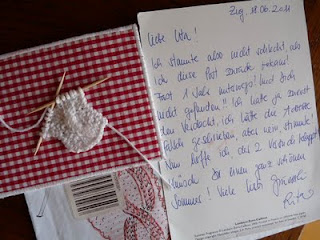 Zug, 18.06.2011
Liebe Uta!
Ich staunte also nicht schlecht, als
ich diese Post zurück bekam!
Fast 1 Jahr unterwegs! und Dich
nicht gefunden!! Ich hatte ja zuerst
den Verdacht, ich hätte die Adresse
falsch geschrieben, aber nein, stimmte!
Nun hoffe ich, der 2. Versuch klappt!
Wünsche Dir einen ganz schönen
Sommer! Viele liebe Grüsse
Rita